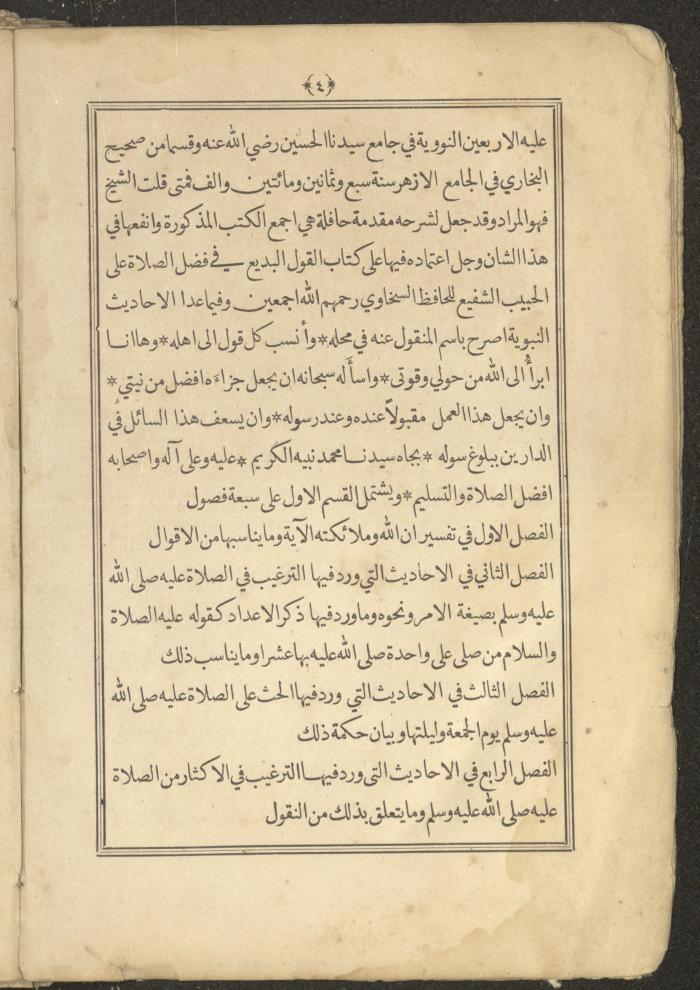 ﴿٤﴾
عليه الاربعين النووية في جامع سيدنا الحسين رضي الله عنه وقسما من صحيح
البخاري في الجامع الازهر سنة سبع وثمانين ومائتين والف فمتى قلت الشيخ
فهو المراد وقد جعل لشرحه مقدمة حافلة هي اجمع الكتب المذكورة وانفعها في
هذا الشان وجل اعتماده فيها على كتاب القول البديع في فضل الصلاة على
الحبيب الشفيع للحافظ السخاوي رحمهم الله اجمعين وفيما عدا الاحاديث
النبوية اصرح باسم المنقول عنه في محله * وأنسب كل قول الى اهله * وها انا
ابرأ الى الله من حولي وقوتي * واسأله سبحانه ان يجعل جزاءه افضل من نيتي *
وان يجعل هذا العمل مقبولاً عنده وعند رسوله * وان يسعف هذا السائل في
الدارين ببلوغ سوله * بجاه سيدنا محمد نبيه الكريم * عليه وعلى آله واصحابه
افضل الصلاة والتسليم * ويشتمل القسم الاول على سبعة فصول
الفصل الاول في تفسير ان الله وملائكته الآية وما يناسبها من الاقوال
الفصل الثاني في الاحاديث التي ورد فيها الترغيب في الصلاة عليه صلى الله
عليه وسلم بصيغة الامر ونحوه وما ورد فيها ذكر الاعداد كقوله عليه الصلاة
والسلام من صلى علي واحدة صلى الله عليه بها عشرا وما يناسب ذلك
الفصل الثالث في الاحاديث التي ورد فيها الحث على الصلاة عليه صلى الله
عليه وسلم يوم الجمعة وليلتها وبيان حكمة ذلك
الفصل الرابع في الاحاديث التي ورد فيها الترغيب في الاكثار من الصلاة
عليه صلى الله عليه وسلم وما يتعلق بذلك من النقول